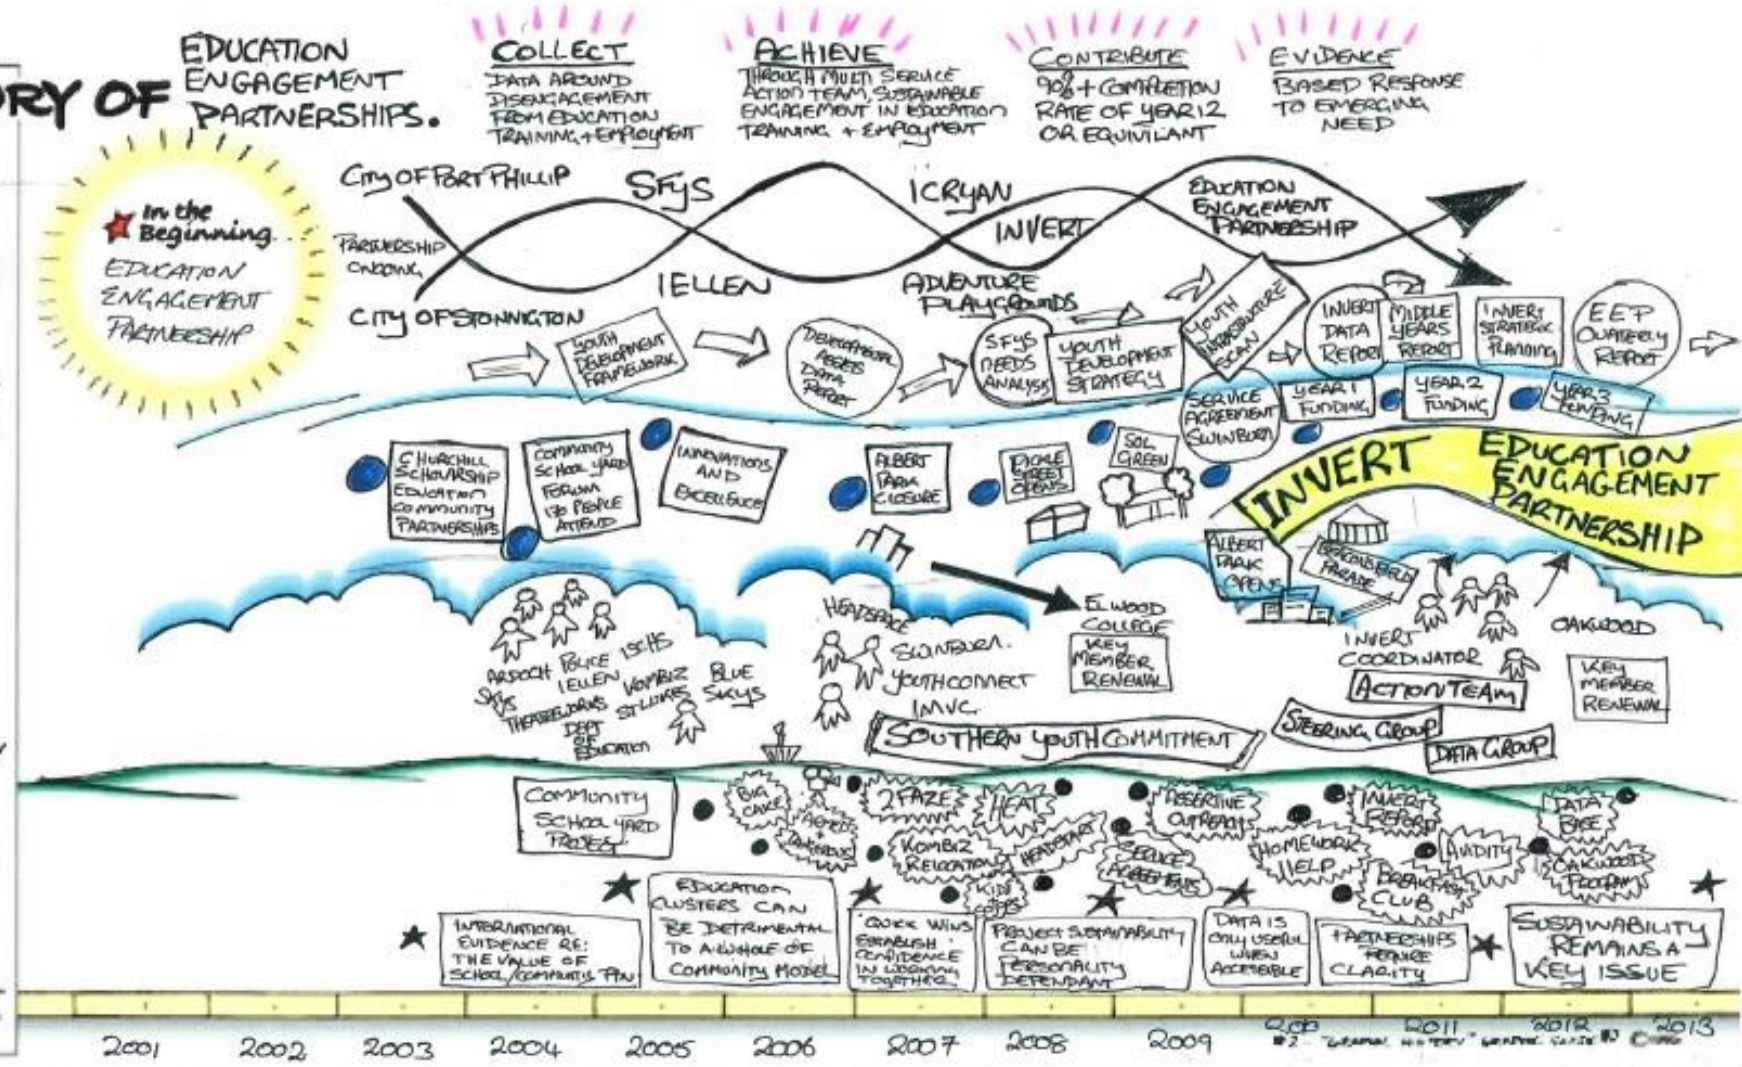 RY OF
EDUCATION
ENGAGEMENT
PARTNERSHIPS.
COLLECT
DATA AROUND
DISENGAGEMENT
FROM EDUCATION
TRAINING + EMPLOYMENT
ACHIEVE
THROUGH MULTI SERVICE
ACTION TEAM, SUSTAINABLE
ENGAGEMENT IN EDUCATION
TRAINING + EMPLOYMENT
CONTRIBUTE
90% + COMPLETION
RATE OF YEAR 12
OR EQUIVILANT
EVIDENCE
BASED RESPONSE
TO EMERGING
NEED
In the
Beginning...
EDUCATION
ENGAGEMENT
PARTNERSHIP
CITY OF PORT PHILLIP
PARTNERSHIP
ONGOING
CITY OF STONNIGTON
SFYS
IELLEN
ICRYAN
INVERT
ADVENTURE
PLAYGROUNDS
EDUCATION
ENGAGEMENT
PARTNERSHIP
YOUTH
DEVELOPMENT
FRAMEWORK
DEVELOPMENTAL
ASSETS
DATA
REPORT
SFYS
NEEDS
ANALYSIS
YOUTH
DEVELOPMENT
STRATEGY
YOUTH
INFRASTRUCTURE
SCAN
INVERT
DATA
REPORT
MIDDLE
YEARS
REPORT
INVERT
STRATEGIC
PLANNING
EEP
QUATERLY
REPORT
SERVICE
AGREEMENT
SWINBURN
YEAR 1
FUNDING
YEAR 2
FUNDING
YEAR 3
FUNDING
CHURCHILL
SCHOLARSHIP
EDUCATION
COMMUNITY
PARTNERSHIPS
COMMUNITY
SCHOOL YARD
FORUM
170 PEOPLE
ATTEND
INNOVATIONS
AND
EXCELLENCE
ALBERT
PARK
CLOSURE
PICKLE
STREET
OPENS
SOL
GREEN
INVERT
EDUCATION
ENGAGEMENT
PARTNERSHIP
ALBERT
PARK
OPENS
BEACONSFIELD
PARADE
ARDOCH POLICE ISCHS
SFYS IELLEN KOMBIZ BLUE
THEATREWORKS ST LUKES SKYS
DEPT
OF
EDUCATION
HEADSPACE
SWINBURN.
YOUTHCONNECT
IMVC
ELWOOD
COLLEGE
KEY
MEMBER
RENEWAL
SOUTHERN YOUTH COMMITMENT
INVERT
COORDINATOR
ACTION TEAM
STEERING GROUP
DATA GROUP
OAKWOOD
KEY
MEMBER
RENEWAL
COMMUNITY
SCHOOL YARD
PROJECT
BIG
CAKE
2FAZE
HEAT
KOMBIZ
RELOCATION
HEADSTART
KIDS
ASSERTIVE
OUTREACH
SERVICE
AGREEMENTS
HOMEWORK
HELP
INVERT
REPORT
AVIDITY
BREAKFAST
CLUB
DATA
BASE
OAKWOOD
PROGRAM
INTERNATIONAL
EVIDENCE RE:
THE VALUE OF
SCHOOL/COMMUNITY
EDUCATION
CLUSTERS CAN
BE DETRIMENTAL
TO A WHOLE OF
COMMUNITY MODEL
QUICK WINS
ESTABLISH
CONFIDENCE
IN WORKING
TOGETHER
PROJECT SUSTAINABILITY
CAN BE
PERSONALITY
DEPENDANT
DATA IS
ONLY USEFUL
WHEN
ACCESSIBLE
PARTNERSHIPS
REQUIRE
CLARITY
SUSTAINABILITY
REMAINS A
KEY ISSUE
2001 2002 2003 2004 2005 2006 2007 2008 2009 2011 2012 2013